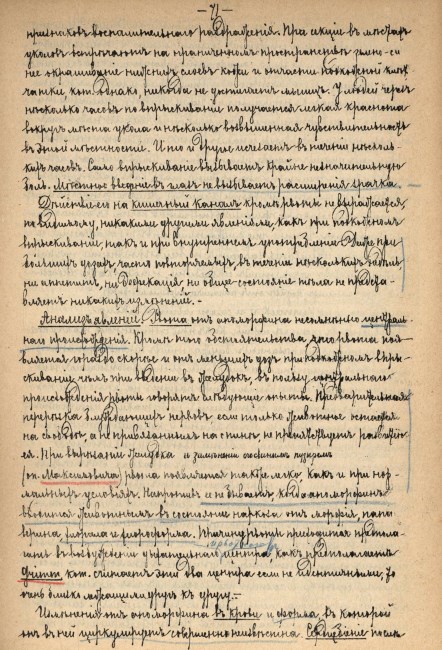 — 71 —
признаковъ воспалительнаго раздраженія. При секціи въ мѣстахъ
уколовъ встрѣчаютъ на ограниченномъ пространствѣ зелено-си
нее окрашиваніе нижнихъ слоевъ кожи и отчасти подкожной клѣт
чатки, кот. однако, никогда не достигаетъ мышцъ. У людей черезъ
нѣсколько часовъ по впрыскиваніи получается легкая краснота
вокругъ мѣста укола и нѣсколько возвышенная чувствительность
въ этой мѣстности. И то и другое исчезаетъ въ теченіи нѣсколь
кихъ часовъ. Само впрыскиваніе вызываетъ крайне незначительную
боль. Мѣстное введеніе въ глазъ не вызываетъ расширенія зрачка.
Дѣйствіе его на кишечный каналъ кромѣ рвоты не выражается,
по видимому, никакими другими явленіями, какъ при подкожномъ
впрыскиваніи, такъ и при внутреннемъ употребленіи. Даже при
большихъ дозахъ, часто повторяемыхъ, въ теченіи нѣсколькихъ недѣль
ни аппетитъ, ни дефекація, ни общее состояніе тѣла не предста
вляетъ никакихъ измѣненій. –
Анализъ явленій. Рвота отъ апоморфина несомнѣнно централь
наго происхожденія. Кромѣ того обстоятельства, что рвота поя
вляется гораздо скорѣе и отъ меньшихъ дозъ при подкожномъ впры
скиваніи чѣмъ при введеніи въ желудокъ, въ пользу центральнаго
происхожденія рвоты говорятъ слѣдующіе опыты. Предварительная
перерѣзка блуждающихъ нервовъ, если только животное остается
на свободѣ, а не привязаннымъ на спинѣ, не препятствуетъ рвотѣ
ея. При вырѣзаніи желудка и замѣненіи его свинымъ пузыремъ
(оп. Максимовича) рвота появляется такъ же легко какъ и при нор
мальныхъ условіяхъ. Напротивъ и не бываетъ, когда апоморфинъ
вводится животнымъ въ состояніе наркоза отъ морфія, папа
верина, хлорала и хлороформа. Причину рвоты приходится предпола
гать въ возбужденіи дыхательнаго центра, какъ предполагаетъ
Гриммъ, кот. считаетъ эти два центра если не идентичными, то
очень близко лежащими другъ къ другу. –
Измѣненія отъ апоморфина въ крови и форма, въ которой
онъ въ ней циркулируетъ совершенно неизвѣстны. Сердцебіеніе послѣ